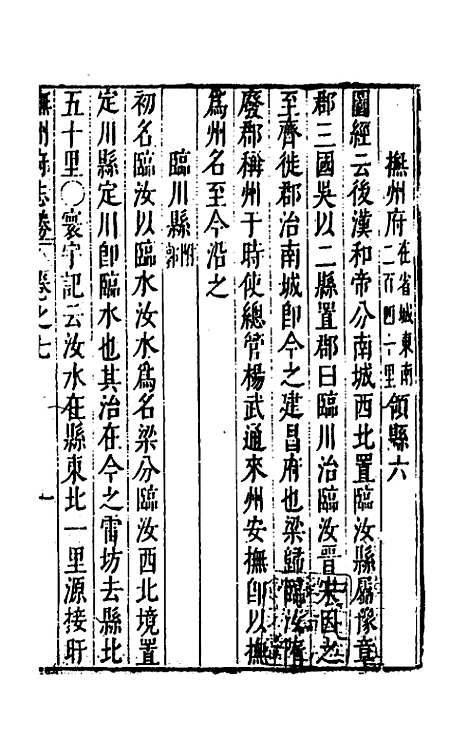 撫州府在省城東南二百四十里領縣六
圖經云後漢和帝分南城西北置臨汝縣屬豫章
郡三國吳以二縣置郡曰臨川治臨汝晉宋因之
至齊徙郡治南城卽今之建昌府也梁歸臨汝隋
廢郡稱州于時使總管楊武通來州安撫卽以撫
爲州名至今沿之
臨川縣附郭
初名臨汝以臨水汝水爲名梁分臨汝西北境置
定川縣定川卽臨水也其治在今之雷坊去縣北
五十里○寰宇記云汝水在縣東北一里源接盱
撫州府志勝 卷之七 一